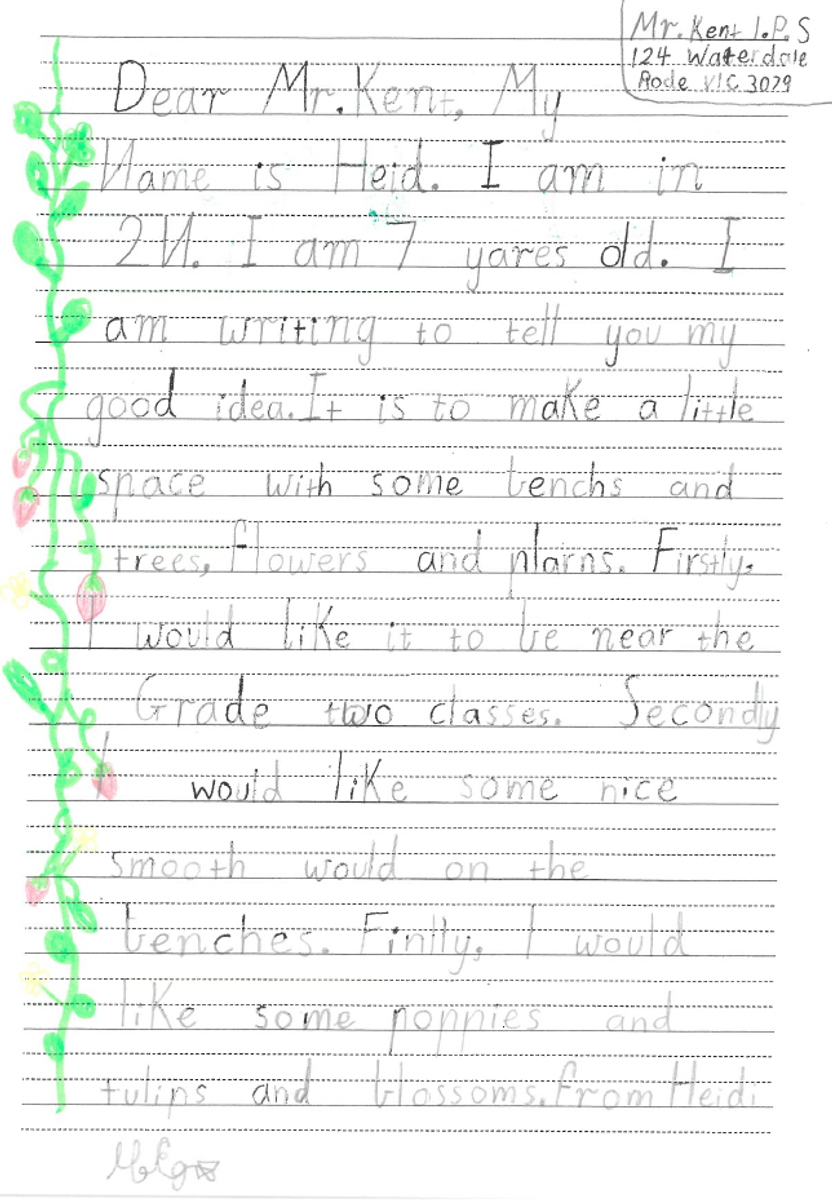 Mr. Kent I.P.S
124 Waterdale
Rode VIC 3079
Dear Mr. Kent, My
Name is Heid. I am in
2N. I am 7 yares old. I
am writing to tell you my
good idea. It is to make a little
space with some benchs and
trees, flowers and plarns. Firstly,
I would like it to be near the
Grade two classes. Secondly
I would like some nice
smooth would on the
benches. Fintly, I would
like some poppies and
tulips and blossoms. from Heidi